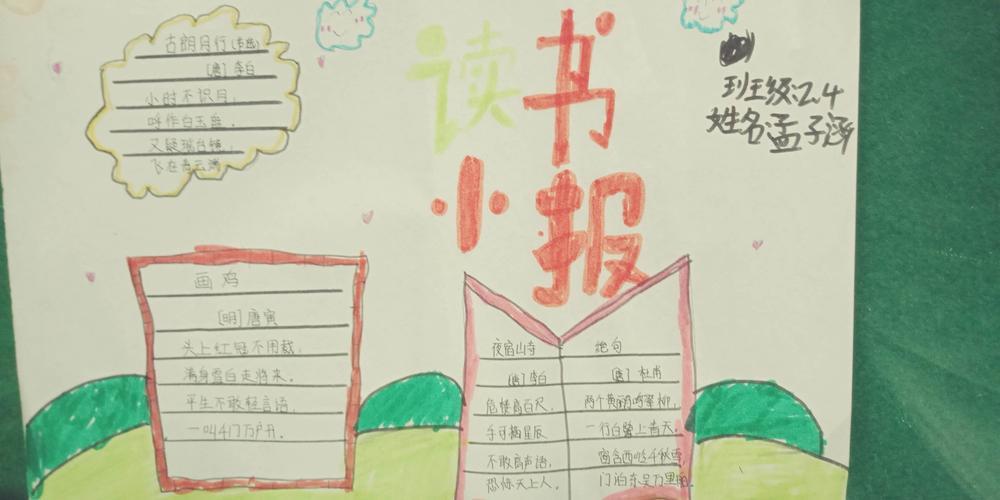 读书
小报
班级:2.4
姓名:孟子涵
古朗月行(节选)
[唐] 李白
小时不识月,
呼作白玉盘。
又疑瑶台镜,
飞在青云端
画鸡
[明] 唐寅
头上红冠不用裁,
满身雪白走将来。
平生不敢轻言语,
一叫千门万户开。
夜宿山寺
[唐] 李白
危楼高百尺,
手可摘星辰
不敢高声语,
恐惊天上人。
绝句
[唐] 杜甫
两个黄鹂鸣翠柳,
一行白鹭上青天。
窗含西岭千秋雪,
门泊东吴万里船。